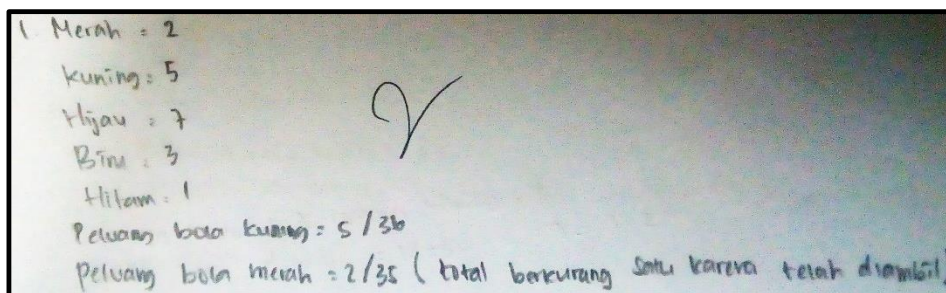 1. Merah = 2
Kuning = 5
Hijau = 7
Biru = 3
Hitam = 1
Peluang bola kuning = 5/36
Peluang bola merah = 2/35 (total berkurang satu karena telah diambil)